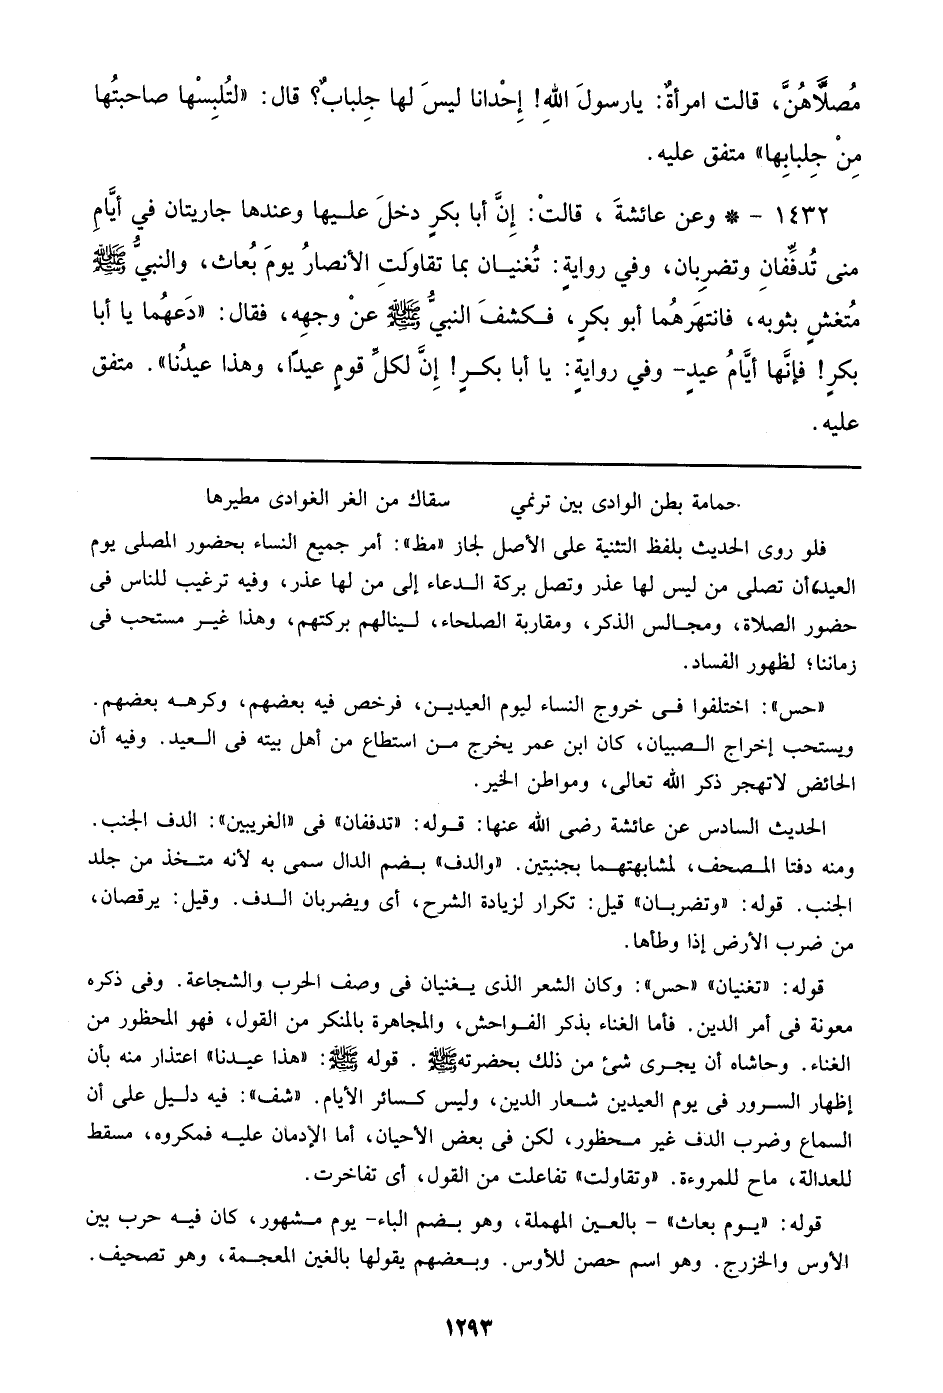 مُصلَّاهُنَّ، قالت امرأةٌ: يارسولَ اللهِ! إِحْدانا ليسَ لها جِلبابٌ؟ قال: «لتُلبِسْها صاحبتُها
مِنْ جِلبابِها» متفق عليه.
١٤٣٢ - * وعن عائشةَ ، قالتْ: إنَّ أبا بكرٍ دخلَ عليها وعندها جاريتان في أيَّامِ
منى تُدفِّفانِ وتضرِبان، وفي روايةٍ: تُغنيان بما تقاولَتِ الأنصارُ يومَ بُعاث، والنبيُّ ﷺ
مُتغشٍ بثوبه، فانتهرَهُما أبو بكرٍ، فكشفَ النبيُّ ﷺ عنْ وجهِه، فقال: «دَعهُما يا أبا
بكرٍ! فإنَّها أيَّامُ عيدٍ- وفي روايةٍ: يا أبا بكرٍ! إنَّ لكلِّ قومٍ عيدًا، وهذا عيدُنا». متفق
عليه.
حمامة بطن الوادى بين ترنمي سقاك من الغر الغوادى مطيرها
فلو روى الحديث بلفظ التثنية على الأصل لجاز «مظ»: أمر جميع النساء بحضور المصلى يوم
العيد، أن تصلى من ليس لها عذر وتصل بركة الدعاء إلى من لها عذر، وفيه ترغيب للناس فى
حضور الصلاة، ومجالس الذكر، ومقاربة الصلحاء، لينالهم بركتهم، وهذا غير مستحب فى
زماننا؛ لظهور الفساد.
«حس»: اختلفوا فى خروج النساء ليوم العيدين، فرخص فيه بعضهم، وكرهه بعضهم.
ويستحب إخراج الصبيان، كان ابن عمر يخرج من استطاع من أهل بيته فى العيد. وفيه أن
الحائض لاتهجر ذكر الله تعالى، ومواطن الخير.
الحديث السادس عن عائشة رضى الله عنها: قوله: «تدففان» فى «الغريبين»: الدف الجنب.
ومنه دفتا المصحف، لمشابهتهما بجنبتين. «والدف» بضم الدال سمى به لأنه متخذ من جلد
الجنب. قوله: «وتضربان» قيل: تكرار لزيادة الشرح، أى ويضربان الدف. وقيل: يرقصان،
من ضرب الأرض إذا وطأها.
قوله: «تغنيان» «حس»: وكان الشعر الذى يغنيان فى وصف الحرب والشجاعة. وفى ذكره
معونة فى أمر الدين. فأما الغناء بذكر الفواحش، والمجاهرة بالمنكر من القول، فهو المحظور من
الغناء. وحاشاه أن يجرى شئ من ذلك بحضرته ﷺ . قوله ﷺ: «هذا عيدنا» اعتذار منه بأن
إظهار السرور فى يوم العيدين شعار الدين، وليس كسائر الأيام. «شف»: فيه دليل على أن
السماع وضرب الدف غير محظور، لكن فى بعض الأحيان، أما الإدمان عليه فمكروه، مسقط
للعدالة، ماح للمروءة. «وتقاولت» تفاعلت من القول، أى تفاخرت.
قوله: «يوم بعاث» - بالعين المهملة، وهو بضم الباء- يوم مشهور، كان فيه حرب بين
الأوس والخزرج. وهو اسم حصن للأوس. وبعضهم يقولها بالغين المعجمة، وهو تصحيف.
١٢٩٣